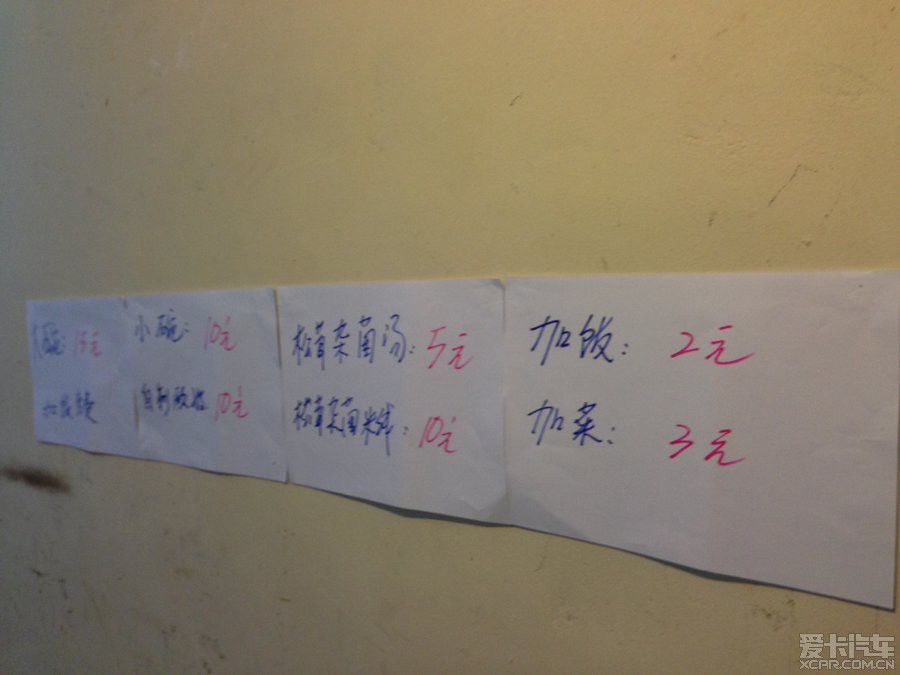 大碗：15元
小碗：10元
自制酸奶 10元
松茸杂菌汤：5元
松茸杂菌米线：10元
加饭：2元
加菜：3元
爱卡汽车
XCAR.COM.CN